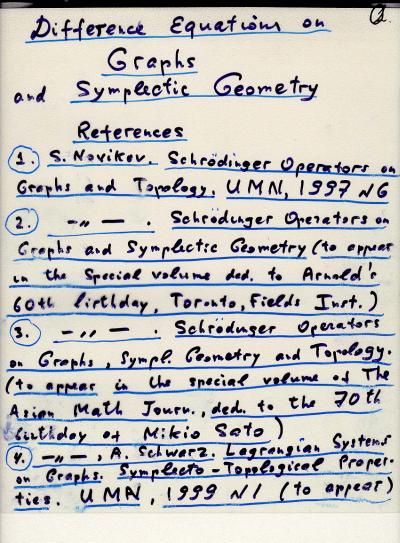 2
Difference Equations on
Graphs
and Symplectic Geometry
References
1. S. Novikov. Schrödinger Operators on
Graphs and Topology. UMN, 1997 N6
2. —"— . Schrödinger Operators on
Graphs and Symplectic Geometry (to appear
in the Special volume ded. to Arnold's
60th birthday, Toronto, Fields Inst.)
3. —"— . Schrödinger Operators
on Graphs, Sympl. Geometry and Topology.
(to appear in the special volume of The
Asian Math Journ., ded. to the 70th
birthday of Mikio Sato)
4. —"—, A. Schwarz. Lagrangian Systems
on Graphs. Symplecto-Topological Proper-
ties. UMN, 1999 N1 (to appear)